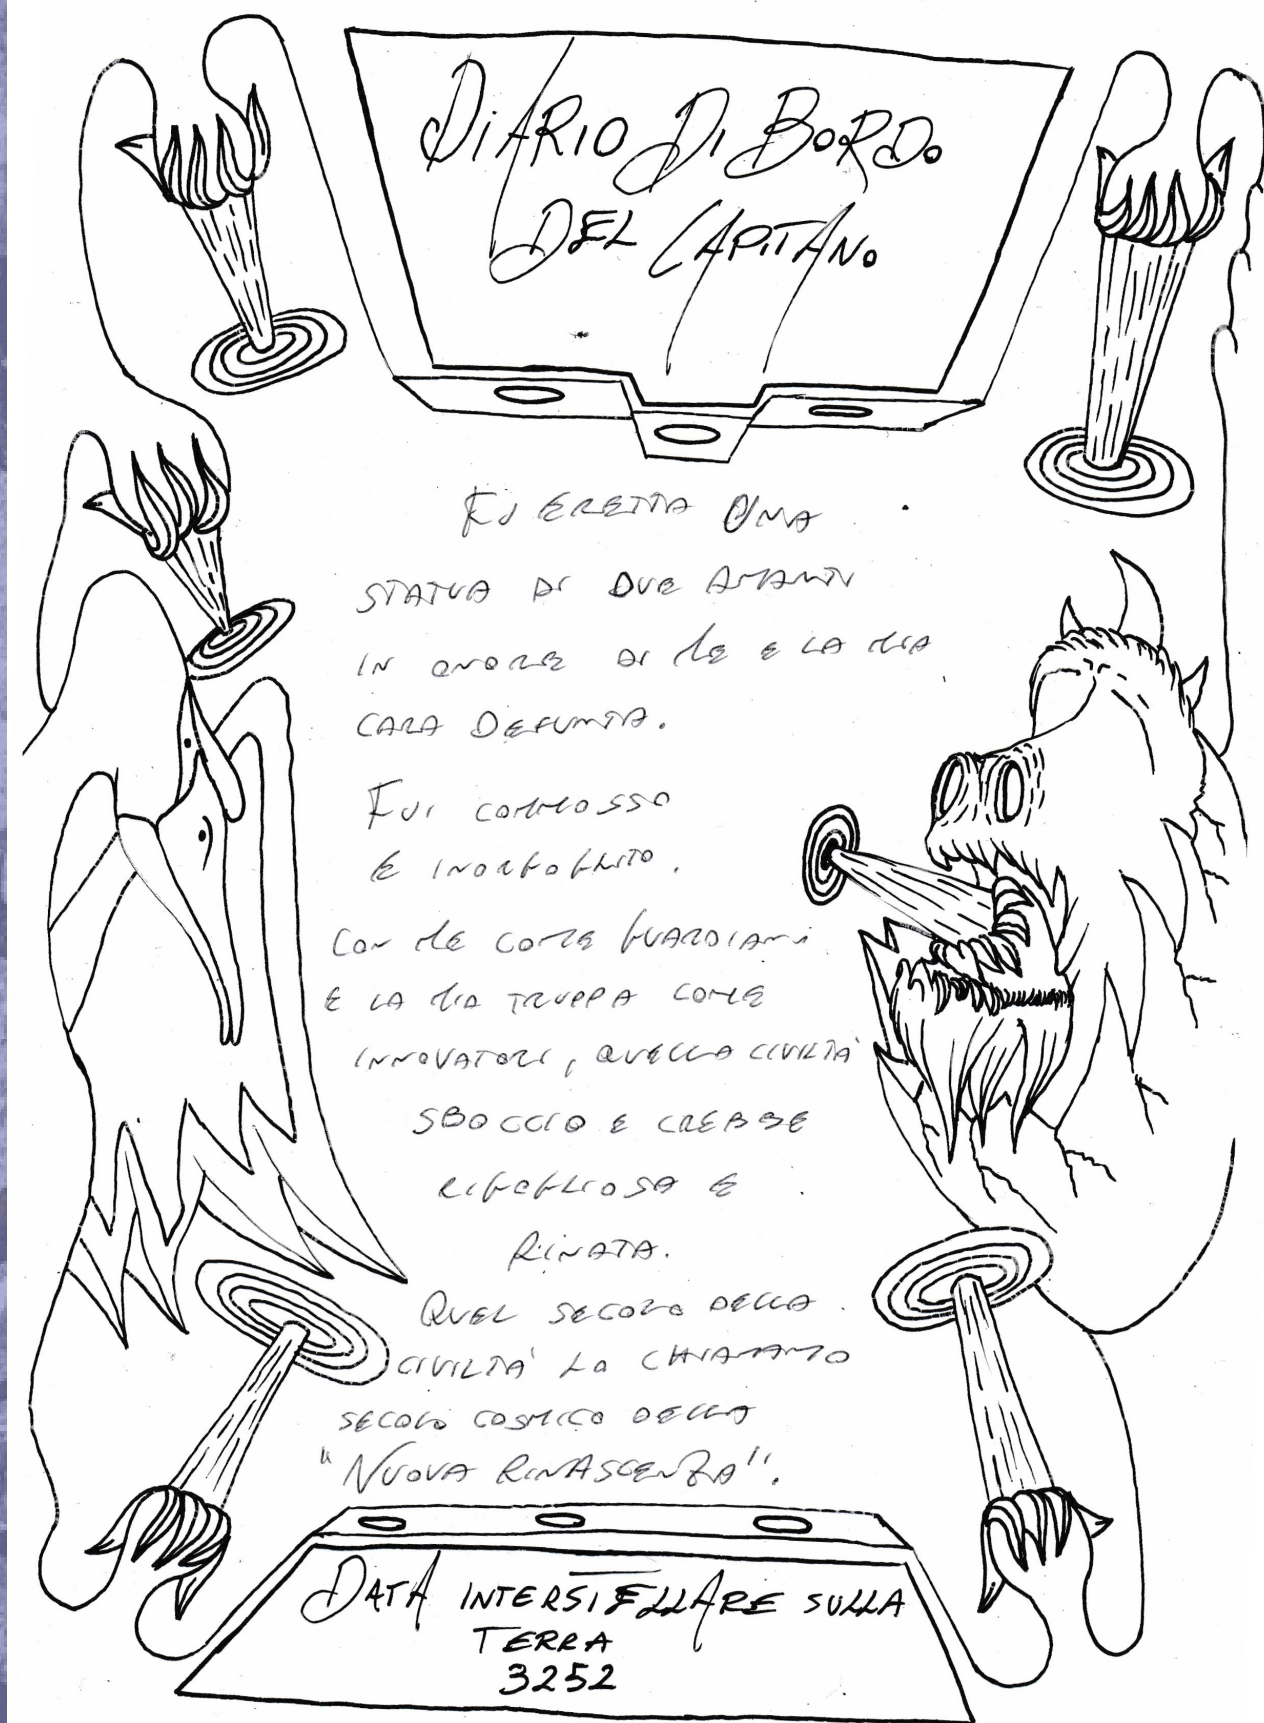 DIARIO DI BORDO
DEL CAPITANO
FU ERETTA UNA
STATUA DI DUE AMANTI
IN ONORE DI ME E LA MIA
CARA DEFUNTA.
FUI COMMOSSO
E INORGOGLITO.
CON ME COME GUARDIANI
E LA MIA TRUPPA COME
INNOVATORI, QUELLA CIVILTÀ
SBOCCIO E CREBBE
RIGOGLIOSA E
RINATA.
QUEL SECOLO DELLA
CIVILTÀ LO CHIAMAMO
SECOLO COSMICO DELLA
"NUOVA RINASCENZA".
DATA INTERSTELLARE SULLA
TERRA
3252